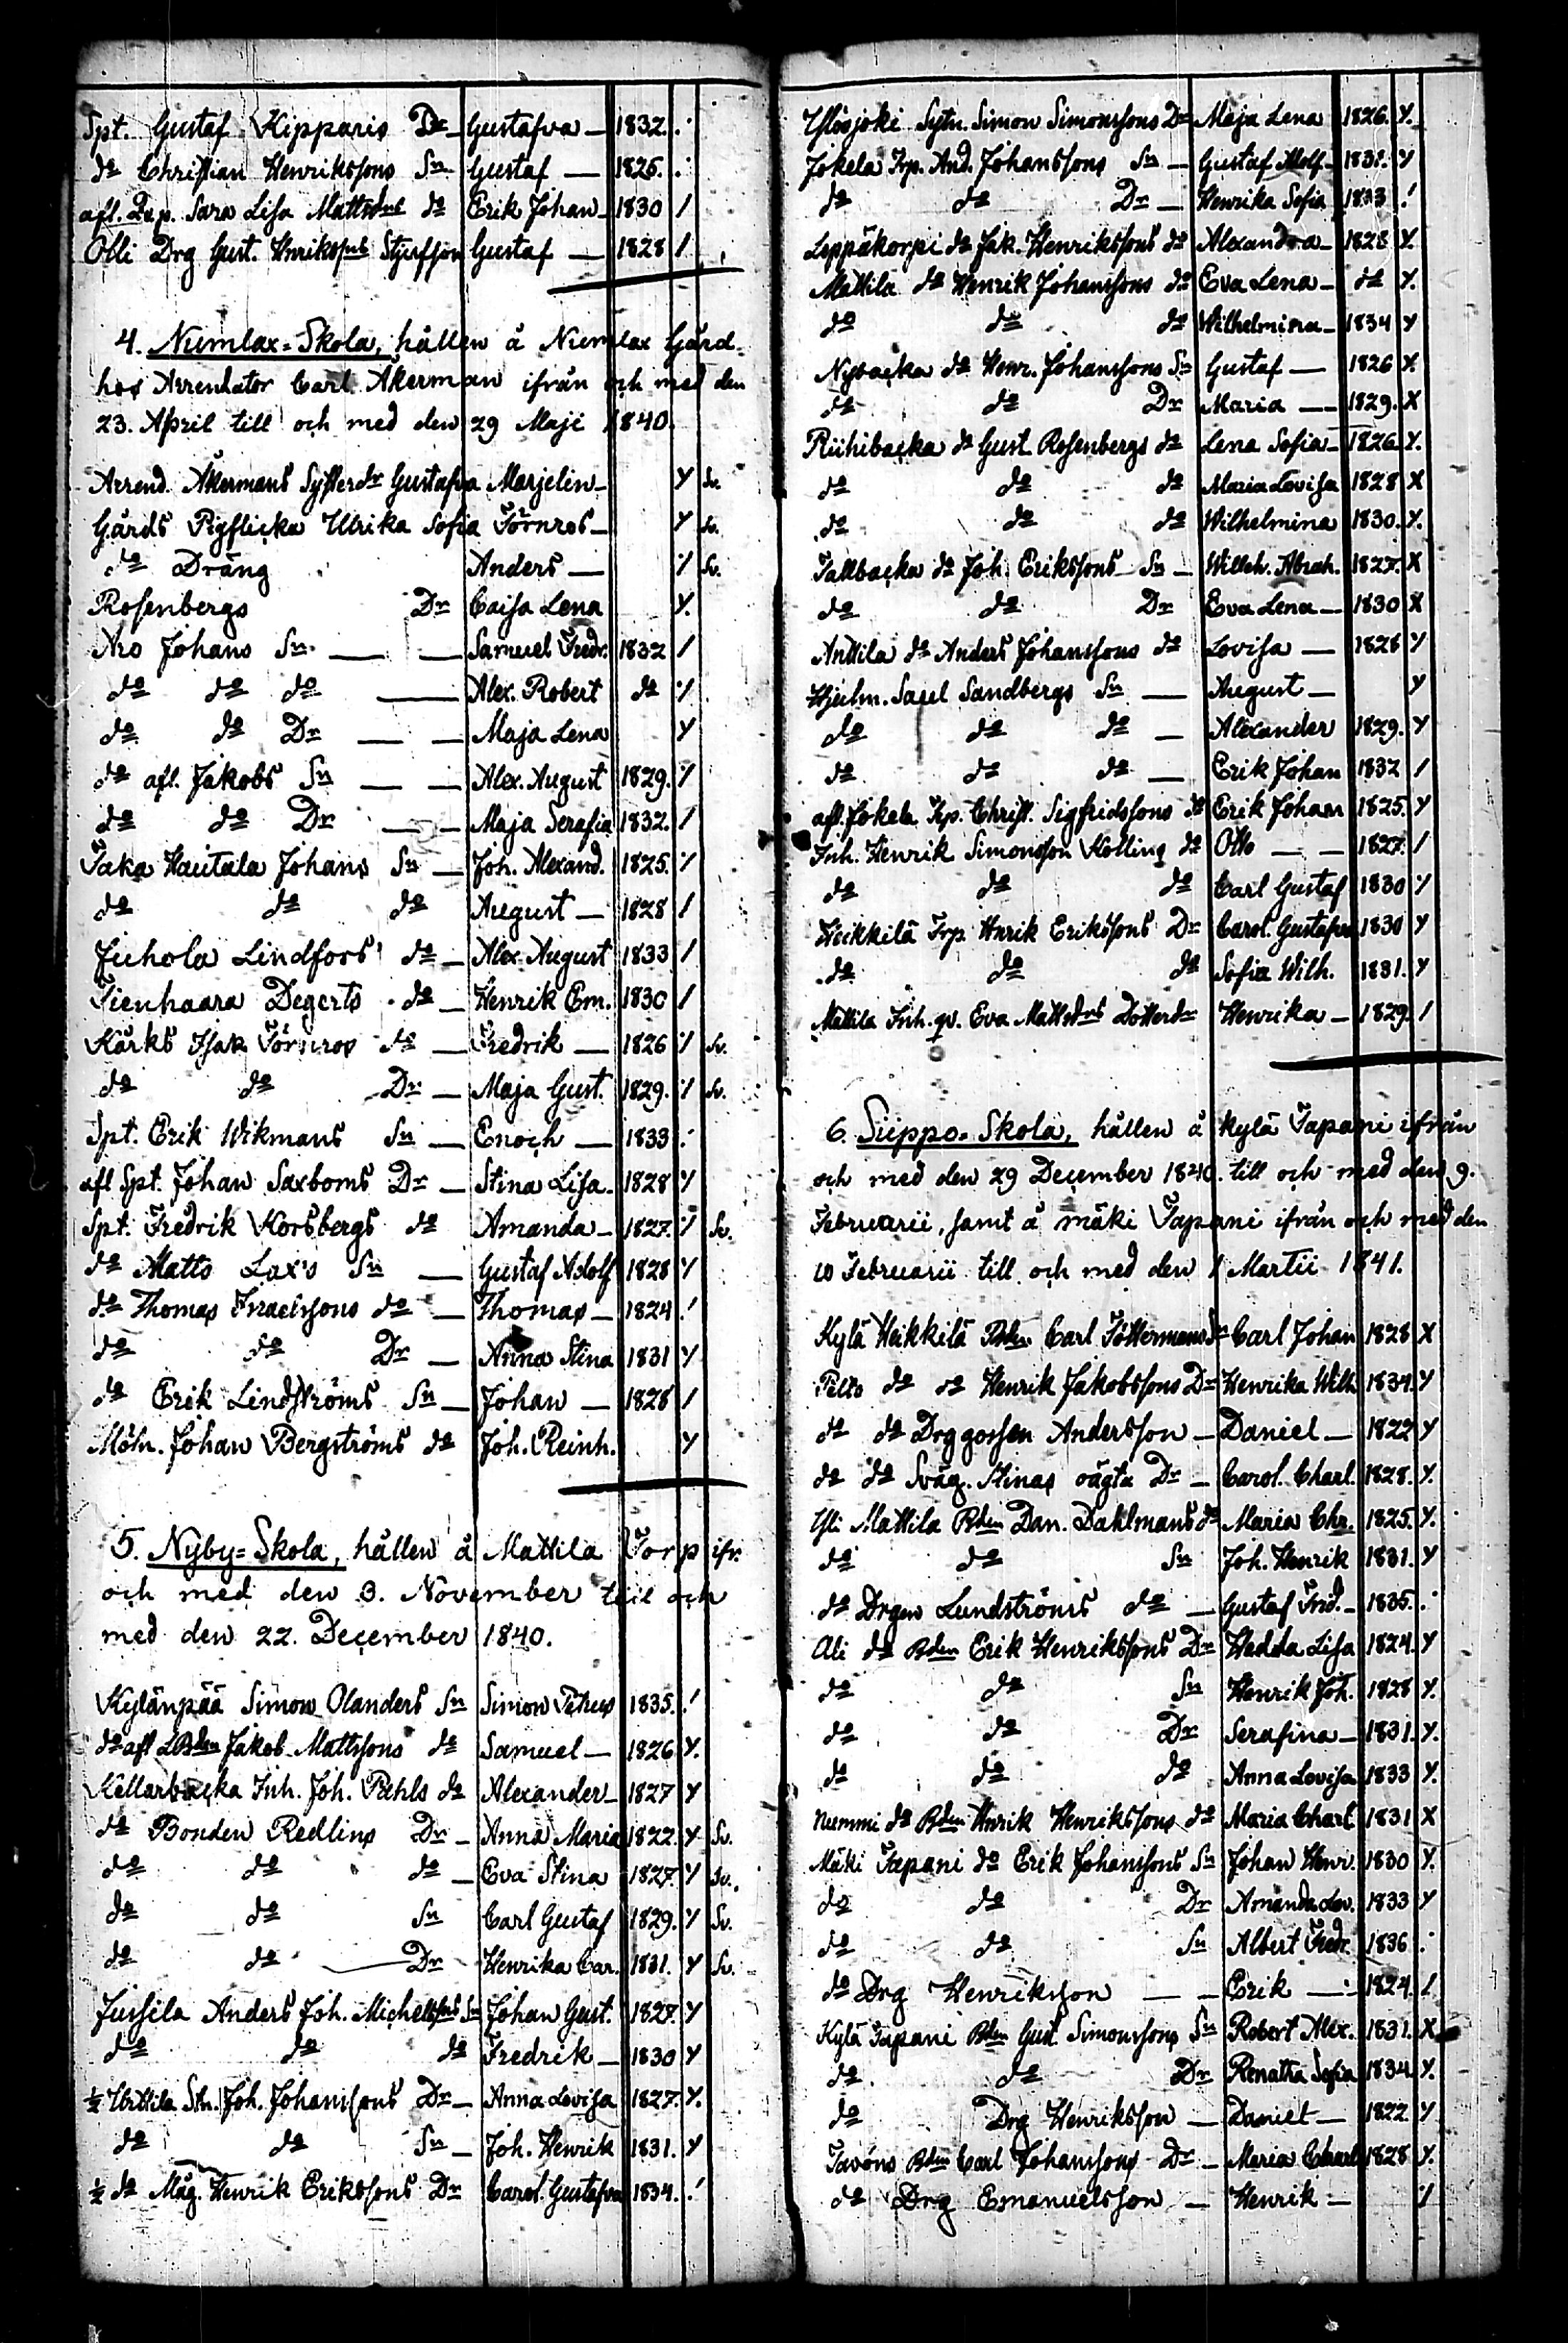 Spt. Gustaf Kipparis Dr – Gustafva – 1832. .·
do Christian Henrikssons Sn Gustaf – 1826. .·
afl. Sara Lisa Mattsdrs do Erik Johan – 1830 /
Olli Drg Gust. Henrikssns Styfson Gustaf – 1828 /
4. Numlax-Skola, hållen å Numlax Gård
hos Arrendator Carl Åkerman ifrån och med den
23. April till och med den 29 Maji 1840.
Arrend. Åkermans Systerdr Gustafva Marjelin – Y Sv.
Gårds Pigflicka Ulrika Sofia Törnros – Y Sv.
do Dräng Anders – ⁒ Sv.
Rosenbergs Dr Caisa Lena Y.
Aro Johans Sn. – – Samuel Fredr. 1832 /
do do do – Alex. Robert do ⁒
do do Dr – – Maja Lena Y
do afl. Jakobs Sn – – Alex. August 1829. ⁒
do do Dr – – Maja Serafia 1832. /
Taka Hautala Johans Sn – Joh. Alexand. 1825. ⁒
do do do August – 1828 /
Juhola Lindfors do – Alex. August 1833 /
Tienhaara Degerts do – Henrik Em. 1830 /
Kärks Isak Törnros do – Fredrik – 1826 ⁒ Sv.
do do Dr – Maja Gust. 1829. ⁒ Sv.
Spt. Erik Wikmans Sn – Enoch – 1833 .·
afl Spt. Johan Saxboms Dr – Stina Lisa. 1828 Y
Spt. Fredrik Korsbergs do Amanda – 1827. ⁒ Sv.
do Matts Lax's Sn – Gustaf Adolf 1828 Y
do Thomas Israelssons do – Thomas – 1824 .'
do do Dr – Anna Stina 1831 Y
do Erik Lindströms Sn – Johan – 1828 /
Möln. Johan Bergströms do Joh. Reinh. Y
5. Nyby-Skola, hållen å Mattila Torp ifr.
och med den 3. November till och
med den 22. December 1840.
Kylänpää Simon Olanders Sn Simon Petrus 1835. .'
do afl LBden Jakob Mattssons do Samuel – 1826 Y.
Kellarbacka Inh. Joh. Pahls do Alexander – 1827 Y
do Bonden Redlins Dr – Anna Maria 1822. Y Sv.
do do do – Eva Stina 1827. Y Sv.
do do Sn Carl Gustaf 1829. Y Sv.
do do – Dr Henrika Car. 1831. Y Sv.
Jussila Anders Joh. Michelssns Sn Johan Gust. 1827. Y
do do do Fredrik – 1830 Y
½ Urttila Stn. Joh. Johanssons Dr – Anna Lovisa 1827. Y.
do do Sn – Joh. Henrik 1831. Y
½ do Måg. Henrik Erikssons Dr Carol. Gustafva 1834. .'
Ylösjoki Sytn. Simon Simonssons Dr Maja Lena 1826. Y.
Jokela Trp. And. Johanssons Sn – Gustaf Adolf – 1831. Y
do do Dr – Henrika Sofia 1833 !
Leppäkorpi do Jak. Henrikssons do Alexandra – 1828 Y.
Mattila do Henrik Johanssons do Eva Lena – do Y.
do do do Wilhelmina – 1834 Y
Nybacka do Henr. Johanssons Sn Gustaf – 1826 X
do do Dr Maria – 1829. X
Riihibacka do Gust. Rosenbergs do Lena Sofia – 1826 Y.
do do do Maria Lovisa 1828 X
do do do Wilhelmina 1830. Y.
Tallbacka do Joh. Erikssons Sn – Wilh. Abrah. 1827. X
do do Dr Eva Lena – 1830 X
Anttila do Anders Johanssons do Lovisa – 1828 Y
Hjulm. Saul Sandbergs Sn – August – Y
do do do – Alexander 1829. Y
do do do – Erik Johan 1832 /
afl. Jokela Trp. Christ. Sigfridssons do Erik Johan 1825. Y
Inh. Henrik Simonsson Kolling do Otto – – 1827. /
do do do Carl Gustaf 1830 ⁒
Heikkilä Trp. Henrik Erikssons Dr Carol. Gustafva 1830 Y
do do do Sofia Wilh. 1831. Y
Mattila Inh. qv. Eva Mattsdrs Dotterdr Henrika – 1829. /
6. Suppo-Skola, hållen å kylä Tapani ifrån
och med den 29 December 1840. till och med den 9.
Februarii, samt å mäki Tapani ifrån och med den
10 Februarii till och med den 1 Martii 1841.
Kylä Heikkilä Bden Carl Töttermans Sn Carl Johan 1828 X
Pelto do do Henrik Jakobssons Dr Henrika Wilh 1834. Y
do do Drggossen Andersson – Daniel – 1822 Y
do do Sväg. Stinas oägta Dr – Carol. Charl. 1828. Y.
Yli Mattila Bden Dan. Dahlmans do Maria Chr. 1825. Y.
do do Sn Joh. Henrik 1831. Y
do Drgen Lundströms do – Gustaf Frid. – 1835. .·
Ali do Bden Erik Henrikssons Dr Hedda Lisa 1824. Y
do do Sn Henrik Joh. 1828 Y.
do do Dr Serafina – 1831. Y.
do do do Anna Lovisa 1833 Y.
Nummi do Bden Henrik Henrikssons do Maria Charl. 1831 X
Mäki Tapani do Erik Johanssons Sn Johan Henr. 1830 Y.
do do Dr Amanda Lov. 1833 Y
do do Sn Albert Fredr. 1836 .·
do Drg Henriksson – – Erik – 1824. /
Kylä Tapani Bden Gust. Simonssons Sn Robert Alex. 1831. X
do do Dr Renatha Sofia 1834 Y.
do Drg Henriksson – Daniel – 1822 Y
Tavons Bden Carl Johanssons Dr – Maria Charl 1828 Y.
do Drg Emanuelsson – Henrik – ⁒